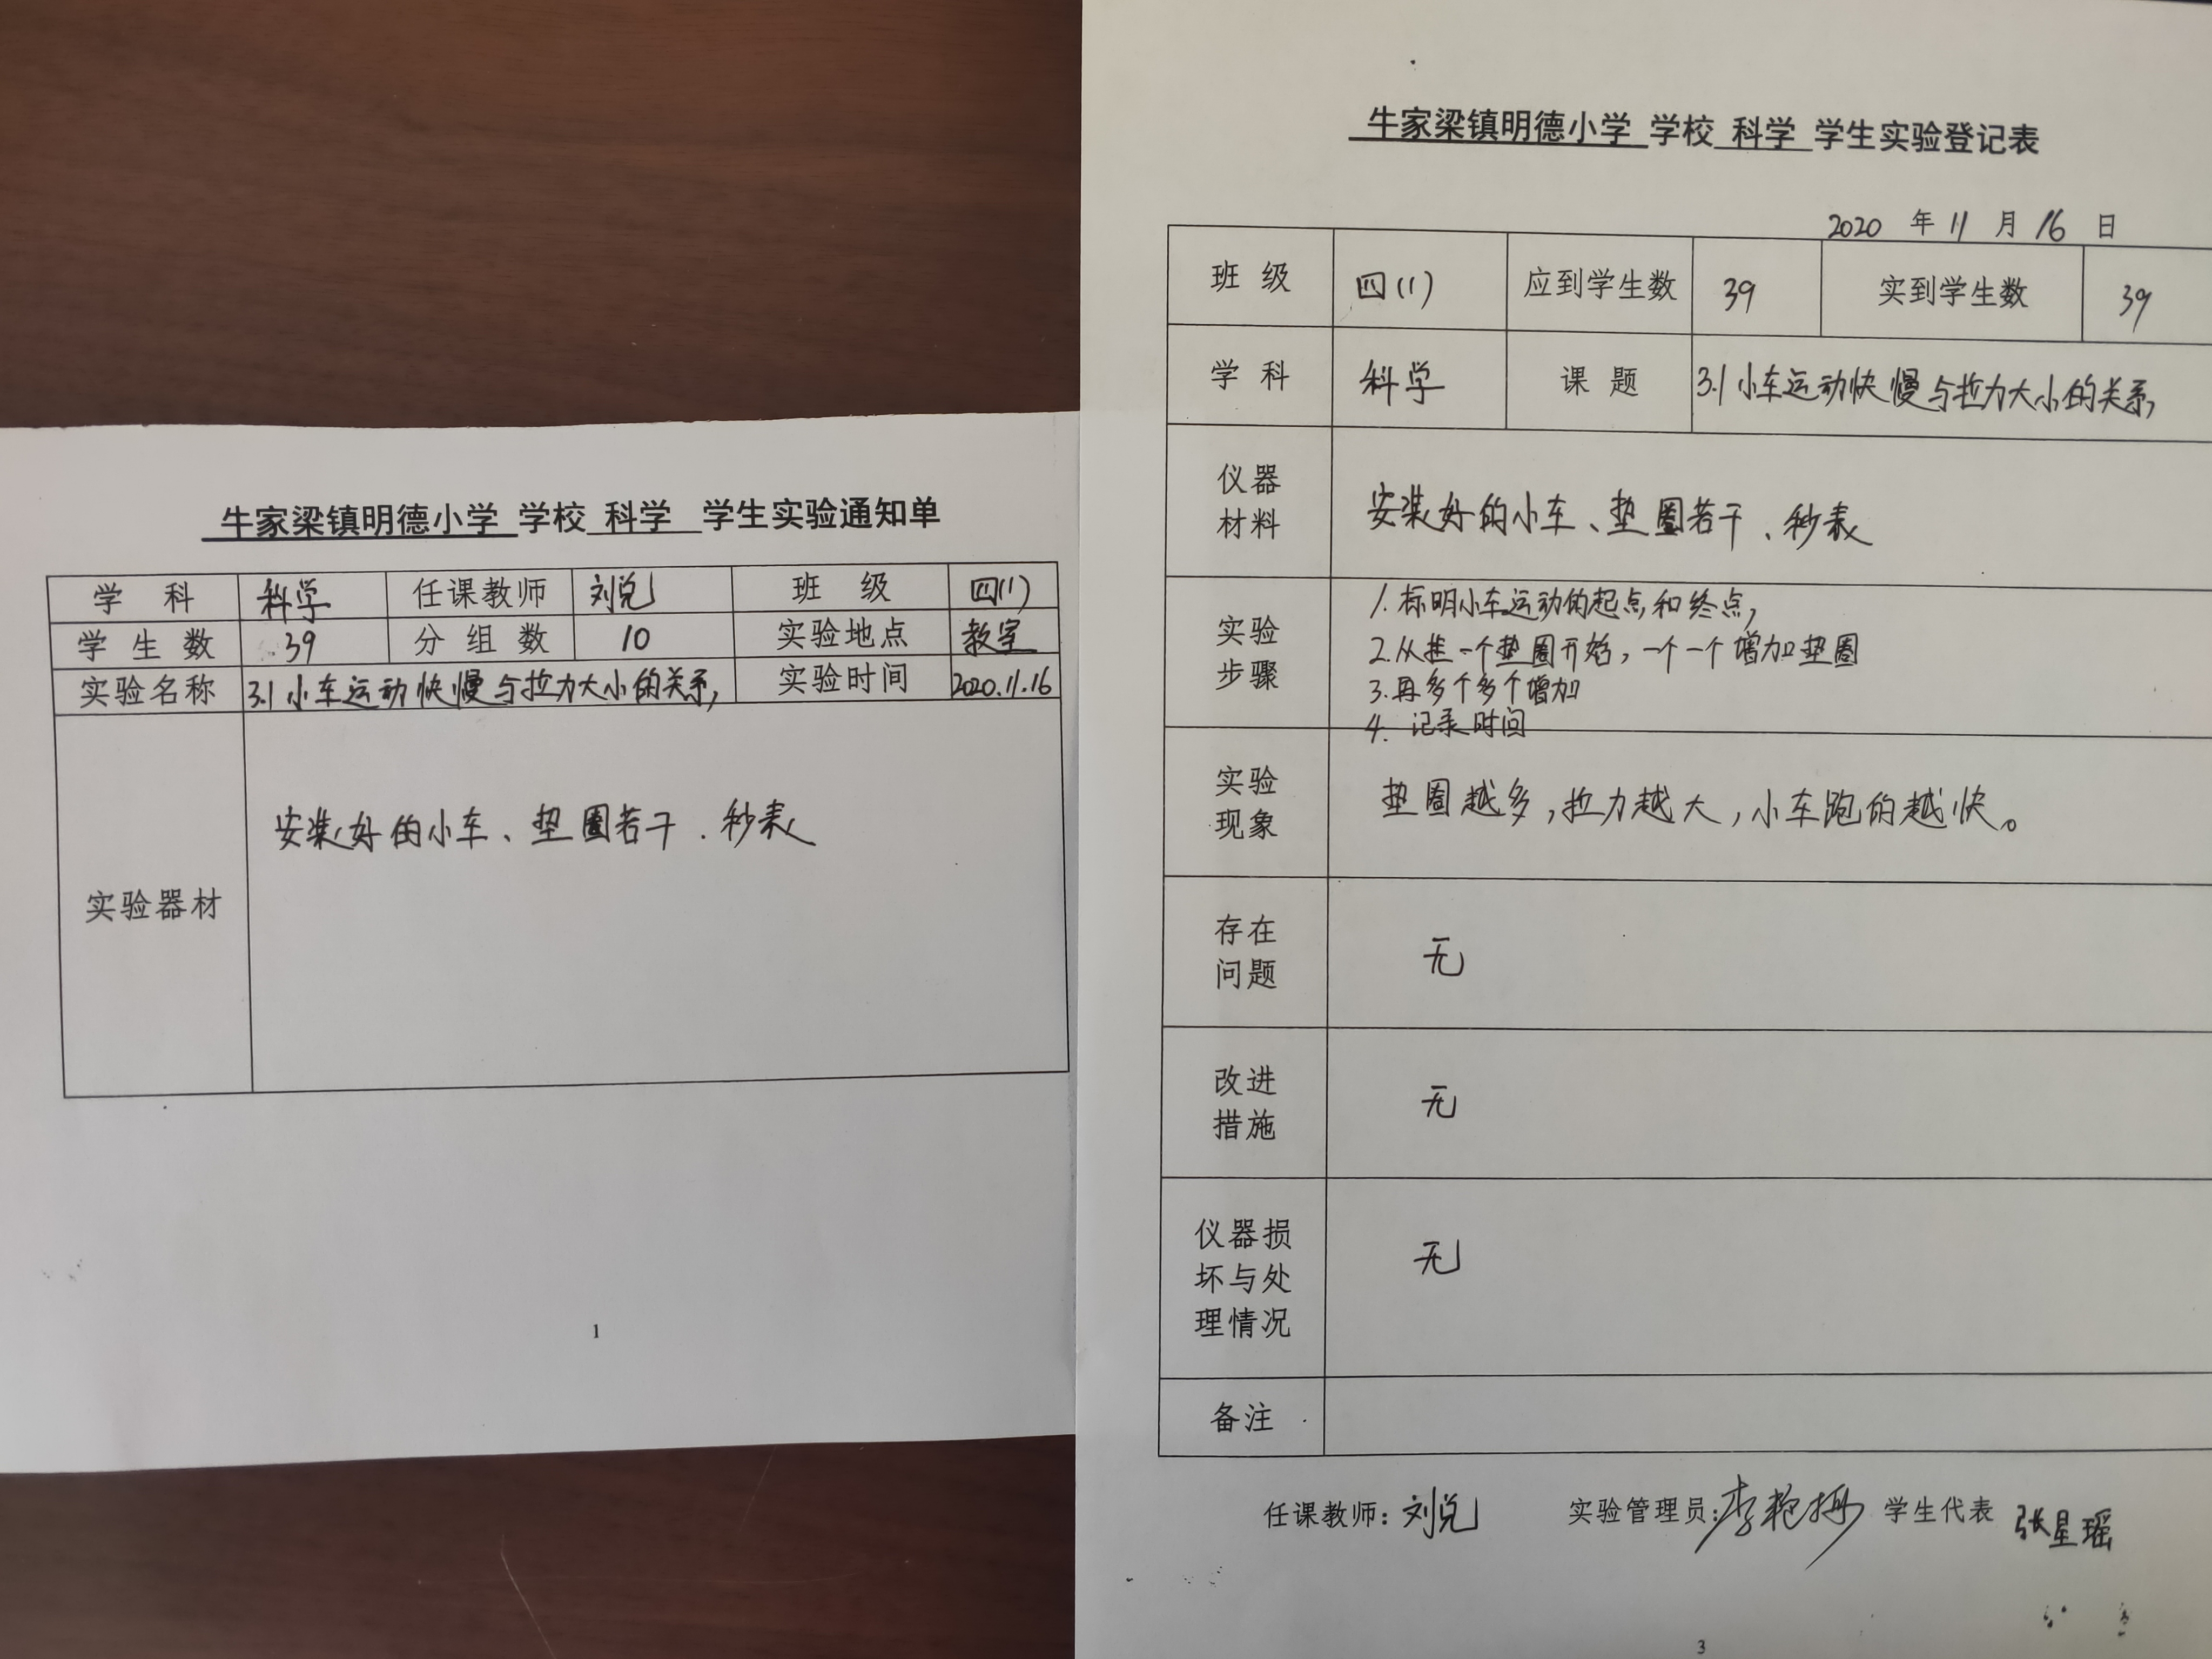 牛家梁镇明德小学 学校 科学 学生实验通知单
学 科 科学 任课教师 刘兑 班 级 四(1)
学 生 数 39 分 组 数 10 实验地点 教室
实验名称 3.1小车运动快慢与拉力大小的关系, 实验时间 2020.11.16
实验器材 安装好的小车、垫圈若干、秒表
1
牛家梁镇明德小学 学校 科学 学生实验登记表
2020 年 11 月 16 日
班 级 四(1) 应到学生数 39 实到学生数 39
学 科 科学 课 题 3.1小车运动快慢与拉力大小的关系,
仪器
材料
安装好的小车、垫圈若干、秒表
实验
步骤
1.标明小车运动的起点和终点,
2.从挂一个垫圈开始,一个一个增加垫圈
3.再多个多个增加
4. 记录时间
实验
现象
垫圈越多,拉力越大,小车跑的越快。
存在
问题
无
改进
措施
无
仪器损
坏与处
理情况
无
备注
任课教师: 刘兑 实验管理员: 学生代表 张星瑶
3